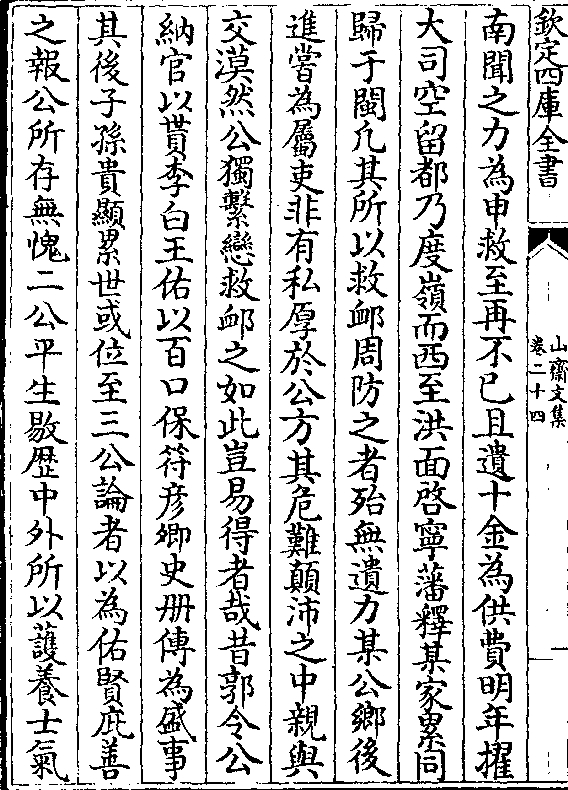 欽定四庫全書
山齋文集
卷二十四
南聞之力為申救至再不已且遺十金為供費明年擢
大司空留都乃度嶺而西至洪面啓寧藩釋某家累同
歸于閩凡其所以救䘏周防之者殆無遺力某公鄉後
進嘗為屬吏非有私厚於公方其危難顛沛之中親與
交漠然公獨繫戀救䘏之如此豈易得者哉昔郭令公
納官以贳李白王佑以百口保符彦卿史册傳為盛事
其後子孫貴顯累世或位至三公論者以為佑賢庇善
之報公所存無愧二公平生敭歴中外所以護養士氣